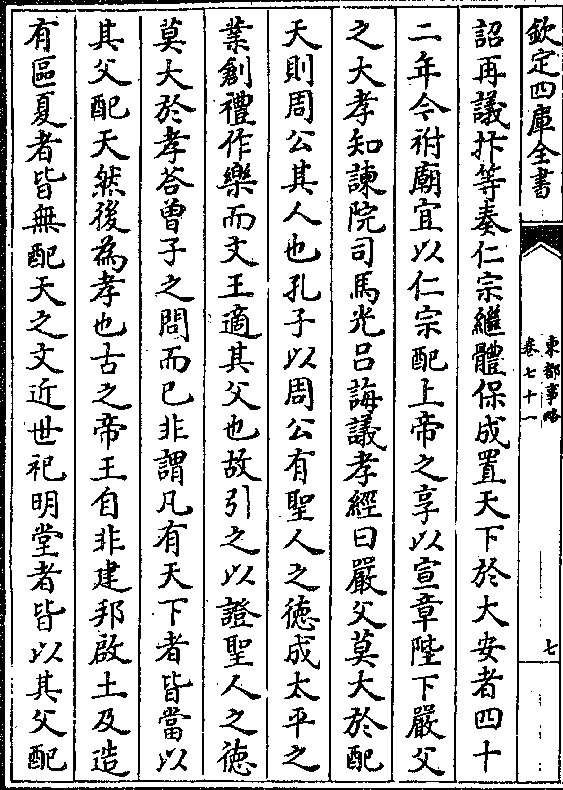 欽定四庫全書
東都事略
卷七十一
七
詔再議抃等奏仁宗繼體保成置天下於大安者四十
二年今祔廟宜以仁宗配上帝之享以宣章陛下嚴父
之大孝知諫院司馬光呂誨議孝經曰嚴父莫大於配
天則周公其人也孔子以周公有聖人之徳成太平之
業創禮作樂而文王適其父也故引之以證聖人之徳
莫大於孝荅曾子之問而已非謂凡有天下者皆當以
其父配天然後為孝也古之帝王自非建邦啟土及造
有區夏者皆無配天之文近世祀明堂者皆以其父配